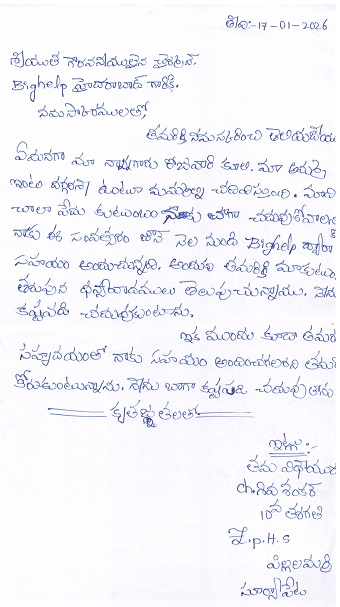 తేది:-17-01-2026
శ్రీయుత గౌరవనీయులైన డైరెక్టర్.
Bighelp హైదరాబాద్ గారికి.
నమస్కారములతో,
తమరికి నమస్కరించి తెలియజేయు
ఏమనగా మా నాన్నగారు రోజువారి కూలి. మా అమ్మ
ఇంటి దగ్గరనే ఉంటూ మమ్మల్ని చదివిస్తుంది. మాది
చాలా పేద కుటుంబం నాకు బాగా చదువుకోవాలని
నాకు ఈ సంవత్సరం జూన్ నెల నుండి Bighelp ద్వారా
సహాయం అందుచున్నది. అందుకు తమరికి మా కుటుంబ
తరుపున ధన్యవాదములు తెలుపుచున్నాము. నేను
కష్టపడి చదువుకుంటాను.
ఇక ముందు కూడా తమరి
సహృదయంతో నాకు సహాయం అందించాలని తమరి
కోరుకుంటున్నాను. నేను బాగా కష్టపడి చదువుతాను
కృతజ్ఞతలతో
ఇట్లు:-
తమ విధేయుడు
ch.శివ శంకర్
10వ తరగతి
Z.p.H.S
పిల్లలమర్రి
సూర్యాపేట